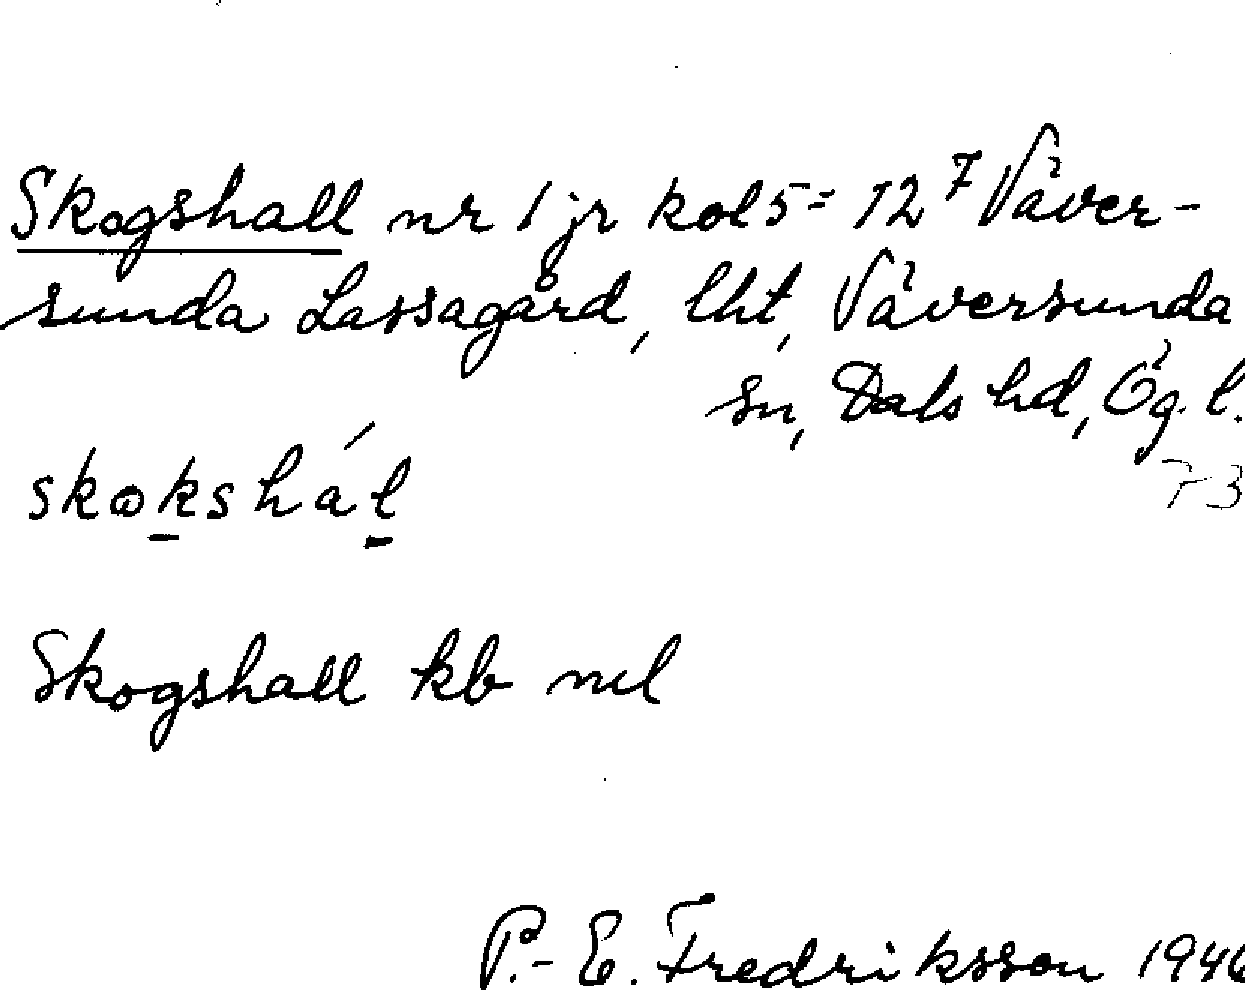 Skogshall nr 1 jr kol 5 = 12⁷ Väver-
sunda Lassagård, lht, Väversunda
sn, Dals hd, Ög. l.
73
skωkshál
Skogshall kb nul
P.-E. Fredriksson 1946